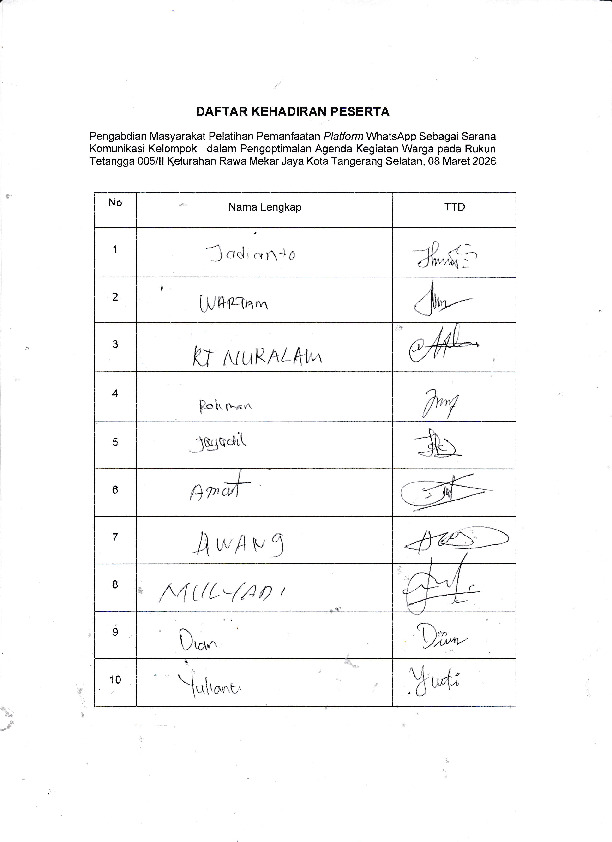 DAFTAR KEHADIRAN PESERTA
Pengabdian Masyarakat Pelatihan Pemanfaatan Platform WhatsApp Sebagai Sarana
Komunikasi Kelompok dalam Pengoptimalan Agenda Kegiatan Warga pada Rukun
Tetangga 005/II Kelurahan Rawa Mekar Jaya Kota Tangerang Selatan, 08 Maret 2026
No Nama Lengkap TTD
1 Jadianto
2 WARTAM
3 RT NURALAM
4 Rohman
5
6 Amat
7 AWANG
8 MULYADI
9 Dian Dian
10 Yulianti Yudi